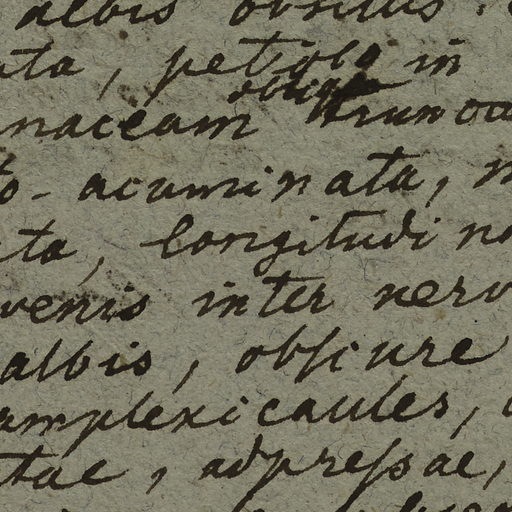 albis obsitus
ata, petiolo in
naceam trunca
to-acuminata,
ata, longitudin
venis inter nerv
albis, obſcure
amplexicaules,
tae, adpreſsae,